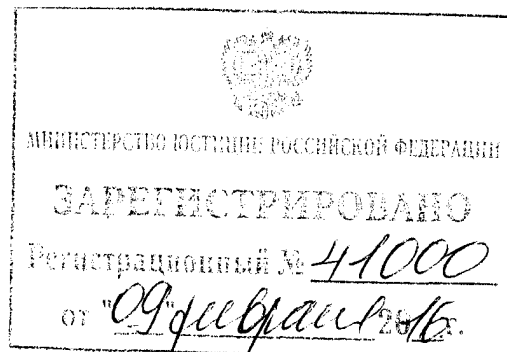 МИНИСТЕРСТВО ЮСТИЦИИ РОССИЙСКОЙ ФЕДЕРАЦИИ
ЗАРЕГИСТРИРОВАНО
Регистрационный № 41000
от "09" февраля 2016 г.